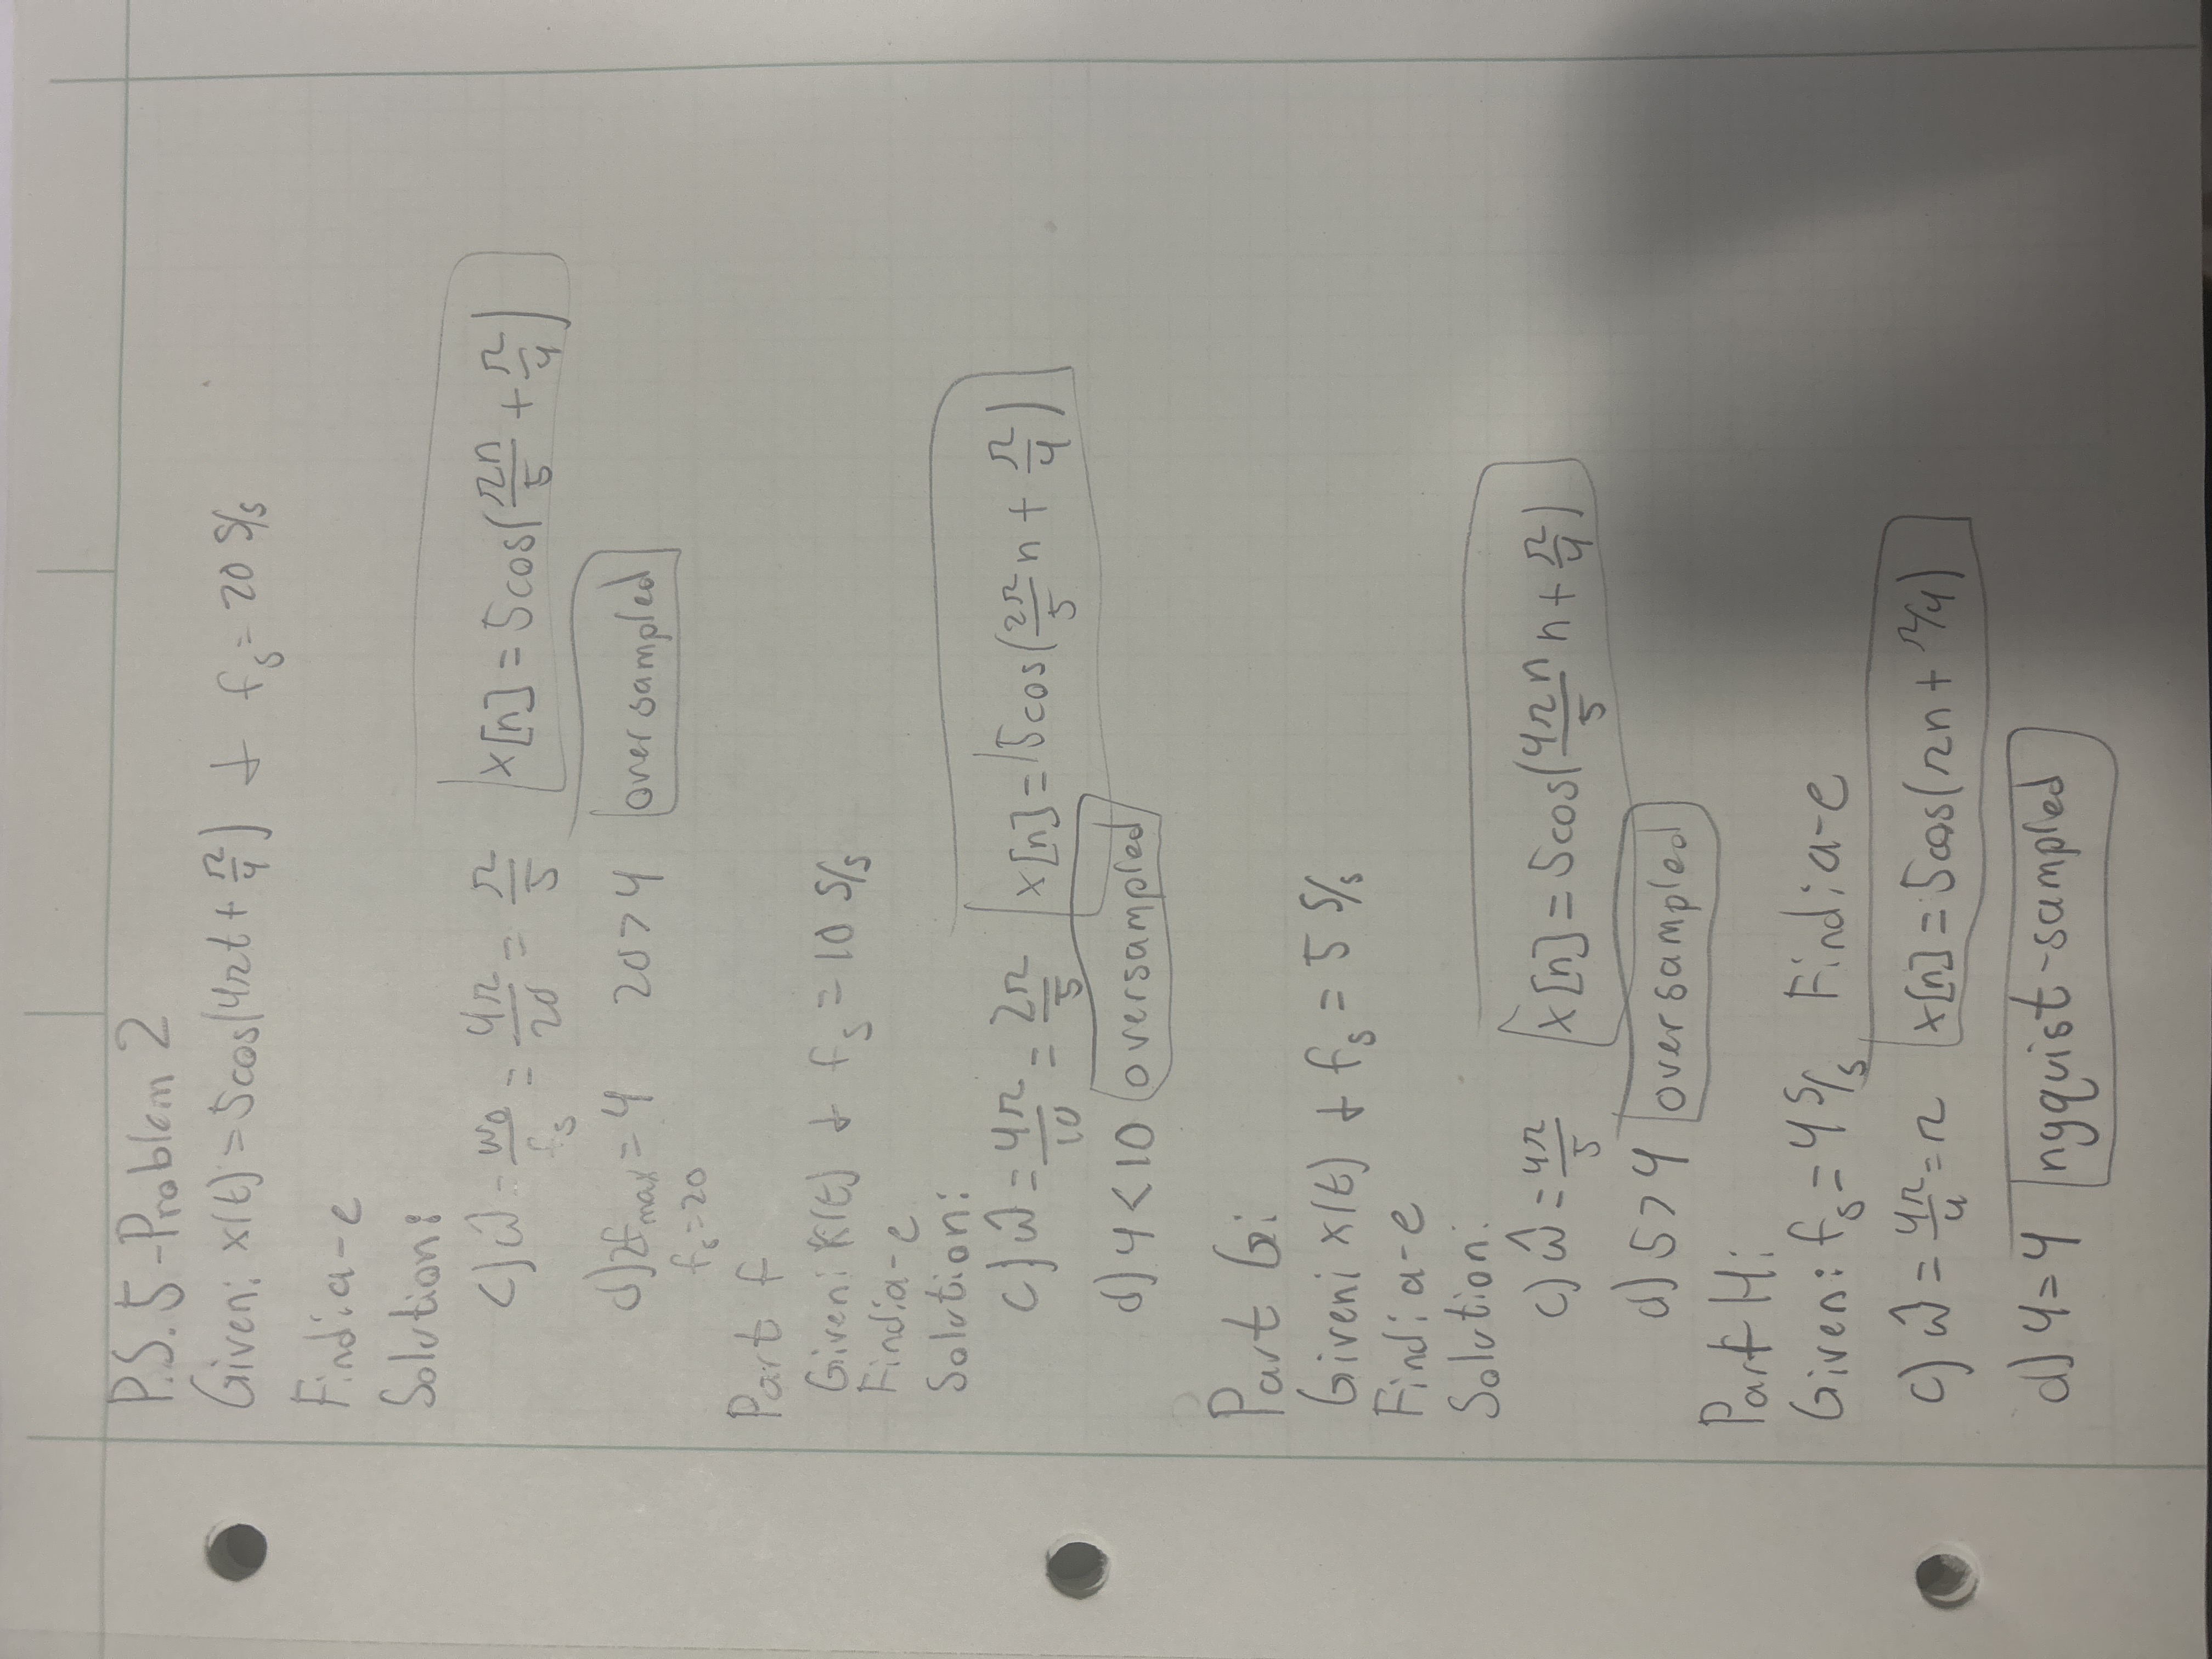 P.S. 5 - Problem 2
Given: x(t) = 5cos(4πt + π/4) & f_s = 20 S/s
Find: a-e
Solution:
c) ω̂ = ω₀/f_s = 4π/20 = π/5   x[n] = 5cos(πn/5 + π/4)
d) 2f_max = 4   20 > 4   oversampled
f_s = 20
Part f
Given: x(t) & f_s = 10 S/s
Find: a-e
Solution:
c) ω̂ = 4π/10 = 2π/5   x[n] = 5cos(2π/5 n + π/4)
d) 4 < 10 oversampled
Part G:
Given: x(t) & f_s = 5 S/s
Find: a-e
Solution:
c) ω̂ = 4π/5   x[n] = 5cos(4πn/5 n + π/4)
d) 5 > 4 oversampled
Part H:
Given: f_s = 4 S/s   Find: a-e
c) ω̂ = 4π/4 = π   x[n] = 5cos(πn + π/4)
d) 4 = 4 nyquist-sampled